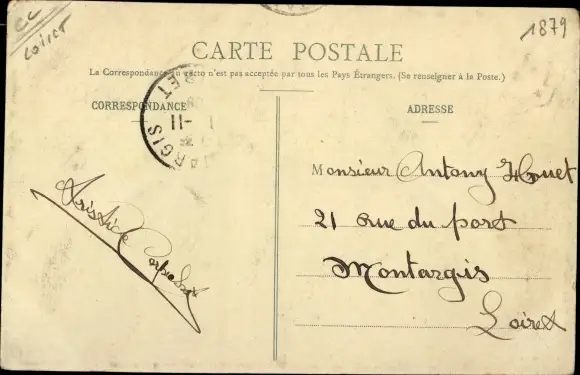 CC
Loiret
1879
CARTE POSTALE
La Correspondance au recto n'est pas acceptée par tous les Pays Étrangers. (Se renseigner à la Poste.)
CORRESPONDANCE
ADRESSE
ARGIS
11
ET
Monsieur Antony Huet
21 Rue du port
Montargis
Loiret
Aristide